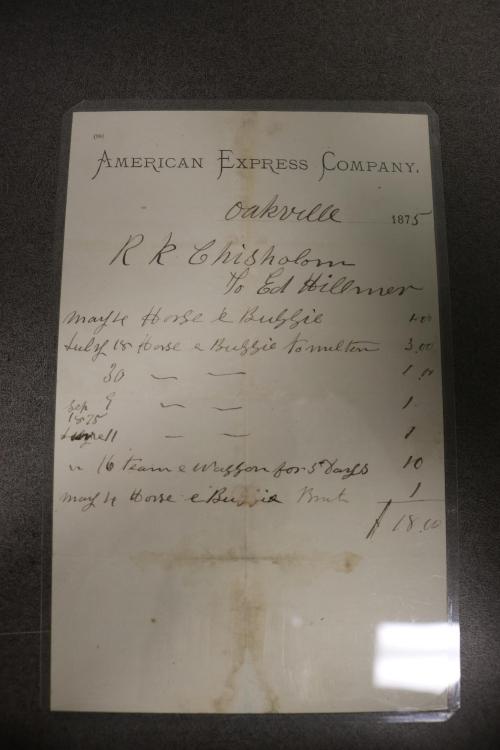 AMERICAN EXPRESS COMPANY.
Oakville 1875
R K Chisholom
To Ed Hillmer
May 14 Horse & Buggie 1.00
July 18 Horse & Buggie to milton 3.00
30 — — 1.00
Sep 9 — — 1
1875
11 — — 1
" 16 team & Waggon for 5 Days 10
May 14 Horse & Buggie 1
$18.00